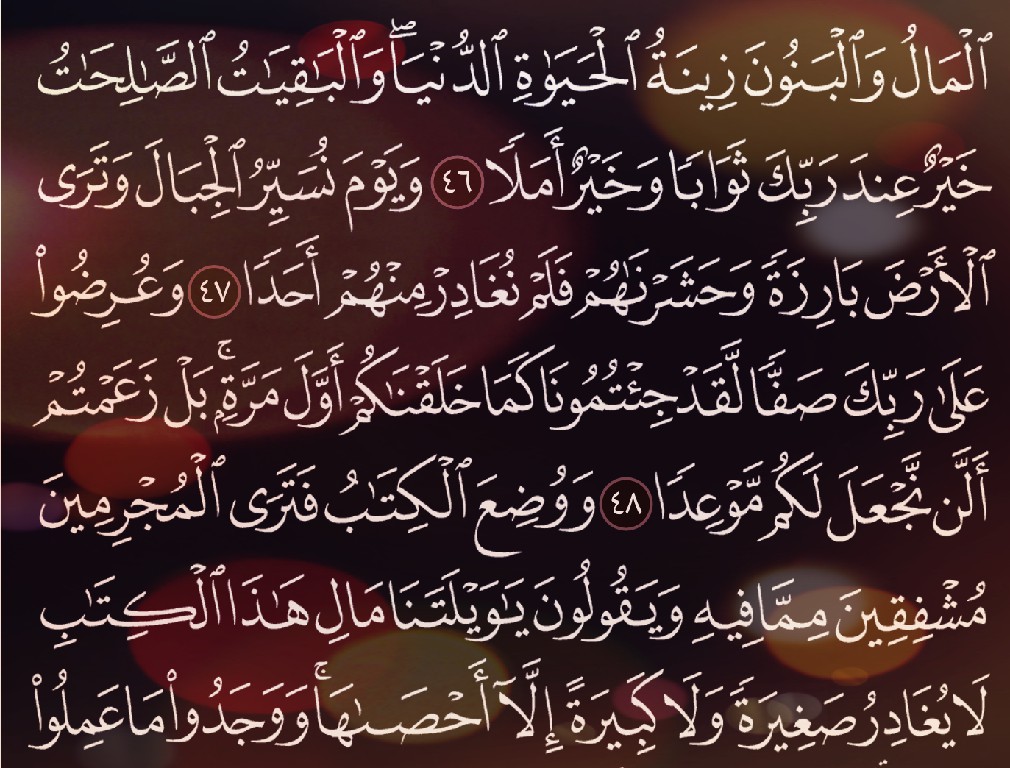 ٱلْمَالُ وَٱلْبَنُونَ زِينَةُ ٱلْحَيَوٰةِ ٱلدُّنْيَاۖ وَٱلْبَٰقِيَٰتُ ٱلصَّٰلِحَٰتُ
خَيْرٌ عِندَ رَبِّكَ ثَوَابًا وَخَيْرٌ أَمَلًا ٤٦ وَيَوْمَ نُسَيِّرُ ٱلْجِبَالَ وَتَرَى
ٱلْأَرْضَ بَارِزَةً وَحَشَرْنَٰهُمْ فَلَمْ نُغَادِرْ مِنْهُمْ أَحَدًا ٤٧ وَعُرِضُوا۟
عَلَىٰ رَبِّكَ صَفًّا لَّقَدْ جِئْتُمُونَا كَمَا خَلَقْنَٰكُمْ أَوَّلَ مَرَّةِۭۚ بَلْ زَعَمْتُمْ
أَلَّن نَّجْعَلَ لَكُم مَّوْعِدًا ٤٨ وَوُضِعَ ٱلْكِتَٰبُ فَتَرَى ٱلْمُجْرِمِينَ
مُشْفِقِينَ مِمَّا فِيهِ وَيَقُولُونَ يَٰوَيْلَتَنَا مَالِ هَٰذَا ٱلْكِتَٰبِ
لَا يُغَادِرُ صَغِيرَةً وَلَا كَبِيرَةً إِلَّآ أَحْصَىٰهَاۚ وَوَجَدُوا۟ مَا عَمِلُوا۟